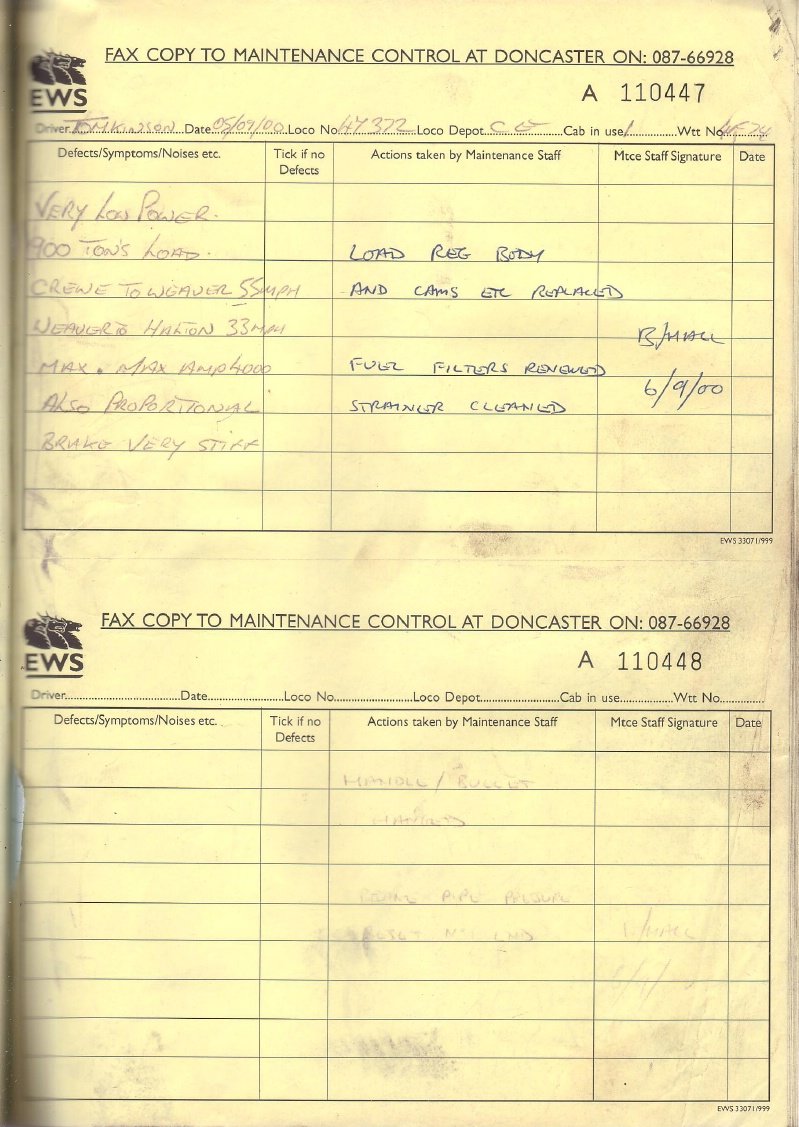 FAX COPY TO MAINTENANCE CONTROL AT DONCASTER ON: 087-66928
EWS
A 110447
Driver TOMKINSON Date 05/09/00 Loco No 47372 Loco Depot Cab in use 1 Wtt No
Defects/Symptoms/Noises etc. Tick if no Defects Actions taken by Maintenance Staff Mtce Staff Signature Date
VERY LOW POWER.
900 TON'S LOAD. LOAD REG BODY
CREWE TO WEAVER 55MPH AND CAMS ETC REPLACED
WEAVER TO HALTON 33MPH B/HALL
MAX. MAX AMP 4000 FUEL FILTERS RENEWED
6/9/00
ALSO PROPORTIONAL STRAINER CLEANED
BRAKE VERY STIFF
EWS 33071/999
FAX COPY TO MAINTENANCE CONTROL AT DONCASTER ON: 087-66928
EWS
A 110448
Driver Date Loco No Loco Depot Cab in use Wtt No
Defects/Symptoms/Noises etc. Tick if no Defects Actions taken by Maintenance Staff Mtce Staff Signature Date
HANDLE / BULLET
PIPE
HALL
EWS 33071/999